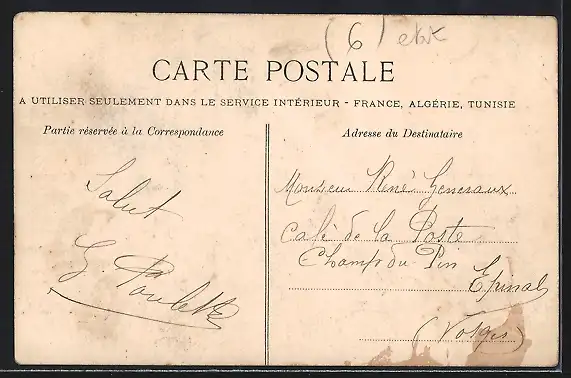 (6) 
CARTE POSTALE
A UTILISER SEULEMENT DANS LE SERVICE INTÉRIEUR - FRANCE, ALGÉRIE, TUNISIE
Partie réservée à la Correspondance
Adresse du Destinataire
Salut
G. Poulette
Monsieur René Generaux
Café de la Poste
Champ du Pin
Epinal
(Vosges)